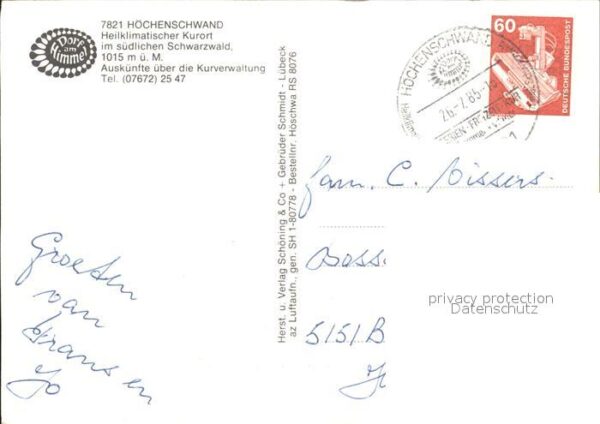 7821 HÖCHENSCHWAND
Heilklimatischer Kurort
im südlichen Schwarzwald,
1015 m ü. M.
Auskünfte über die Kurverwaltung
Tel. (07672) 25 47
Dorf
am
Himmel
HÖCHENSCHWAND
26.-7.85
60
DEUTSCHE BUNDESPOST
Herst. u. Verlag Schöning & Co + Gebrüder Schmidt - Lübeck
az Luftaufn., gen. SH 1-80778 - Bestellnr. Höschwa RS 8076
Fam. C. Vissers.
5151B
Groeten
van
Frans en
Jo
privacy protection
Datenschutz